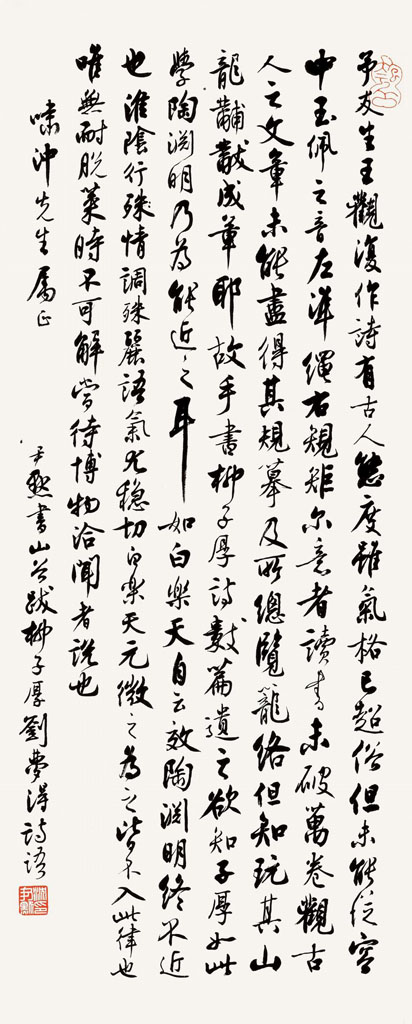 予友生王觀復作詩有古人態度雖氣格已超俗但未能從容
中玉佩之音左準繩右規矩尔意者讀書未破萬卷觀古
人之文章未能盡得其規摹及所總覽籠絡但知玩其山
龍黼黻成章耶故手書柳子厚詩數篇遺之欲知子厚如此
學陶淵明乃為能近之耳如白樂天自云效陶淵明終不近
也淮陰行殊情調殊麗語氣尤穩切白樂天元微之為之皆不入此律也
唯無耐脫菜時不可解當待博物洽聞者說也
嘯沖先生屬正
尹默書山谷跋柳子厚劉夢得詩語